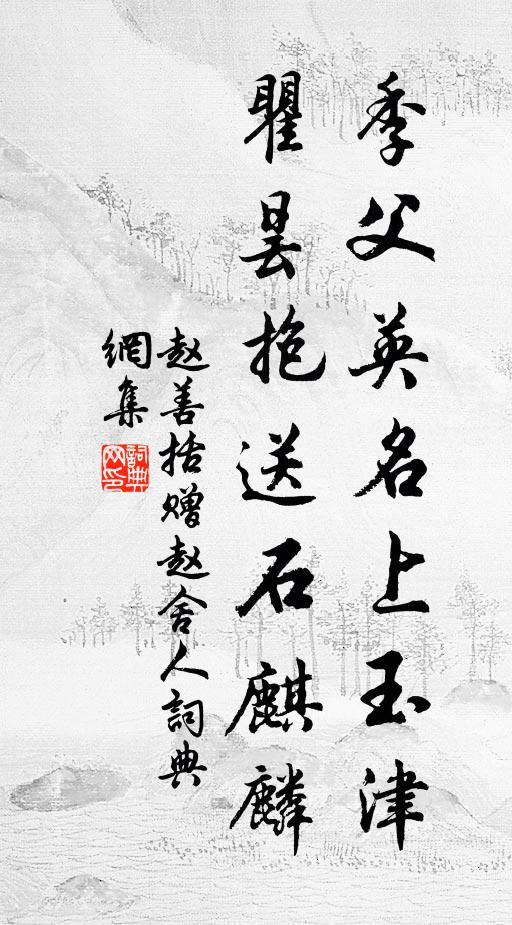 季父英名上玉津
瞿昙抱送石麒麟
赵善括赠赵舍人词典
網集
詞典网印